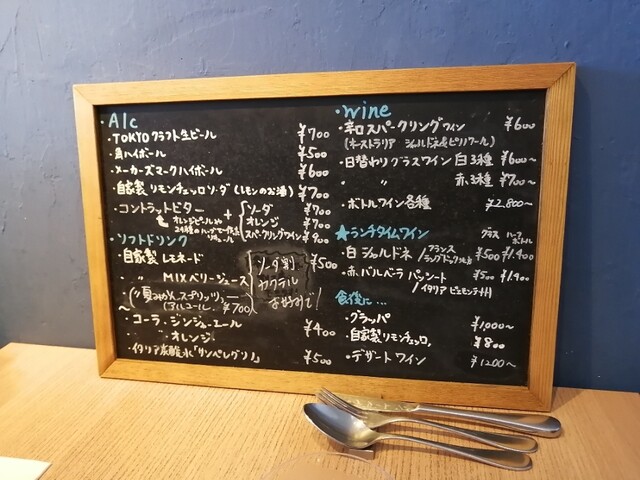 ・Alc
・TOKYOクラフト生ビール ¥700
・角ハイボール ¥500
・メーカーズマークハイボール ¥600
・自家製リモンチェッロソーダ(レモンのお酒) ¥700
・コントラットビター + ソーダ ¥700
オレンジピールや オレンジ ¥700
24種のハーブで作る スパークリングワイン ¥900
・ソフトドリンク
・自家製レモネード ¥500
・〃 MIXベリージュース
ソーダ割
カクテル
お好みで!
"夏みかんスプリッツ"
(アルコール ¥700)
・コーラ、ジンジャーエール ¥400
・オレンジ
・イタリア炭酸水「サンペレグリノ」 ¥500
・wine
・辛口スパークリングワイン ¥600
(オーストラリア シャルドネ&ピノノワール)
・日替わりグラスワイン 白3種 ¥600〜
〃 赤3種 ¥700〜
・ボトルワイン各種 ¥2,800〜
★ランチタイムワイン グラス ハーフボトル
・白 シャルドネ/フランス ¥500 ¥1,400
・赤 バルベーラ パッシート ¥500 ¥1,400
/イタリア ピエモンテ州
食後に…
・グラッパ ¥1,000〜
・自家製リモンチェッロ ¥800
・デザートワイン ¥1200〜